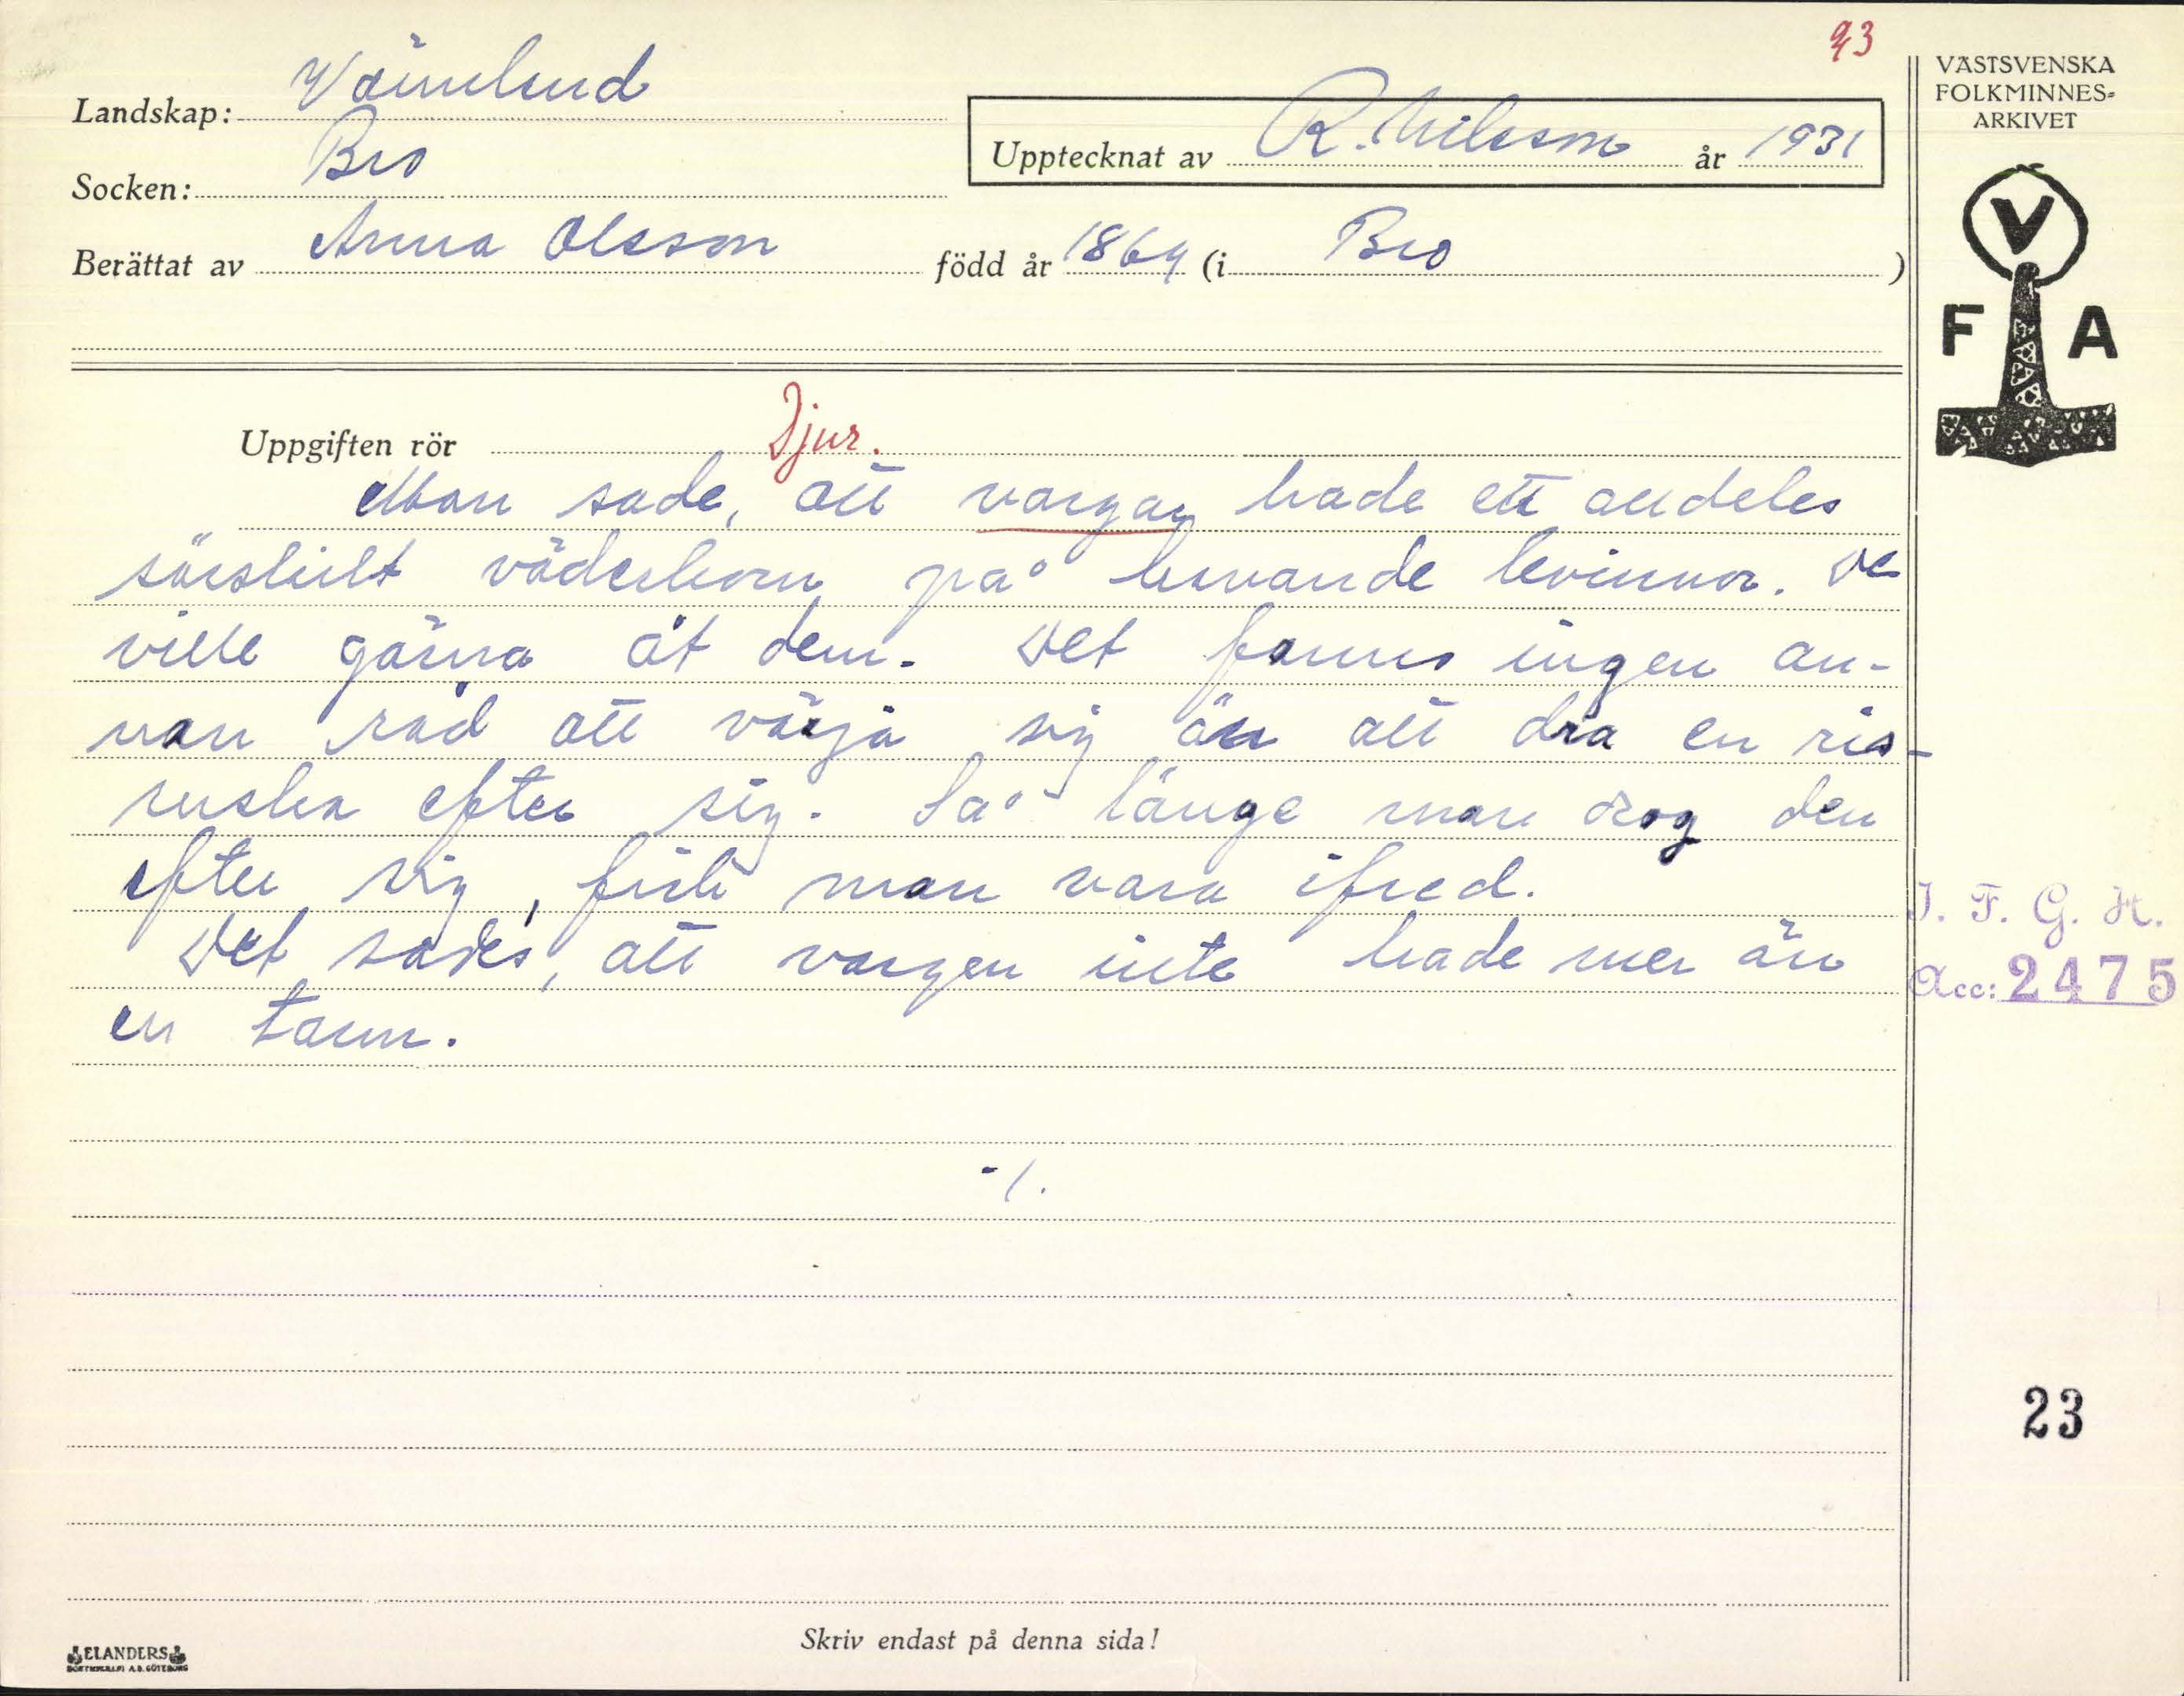 93
VÄSTSVENSKA
FOLKMINNES-
ARKIVET
Landskap: Värmland
Socken: Bro
Upptecknat av R. Nilsson år 1931
Berättat av Anna Olsson född år 1864 (i Bro )
V
F A
Uppgiften rör Djur.
Man sade, att vargar hade ett alldeles
särskilt väderkorn på havande kvinnor. De
ville gärna åt dem. Det fanns ingen an-
nan råd att värja sig än att dra en ris-
ruska efter sig. Så länge man drog den
efter sig, fick man vara ifred.
Det sades, att vargen inte hade mer än
en tarm.
-/.
I. F. G. H.
Acc: 2475
23
Skriv endast på denna sida!
ELANDERS